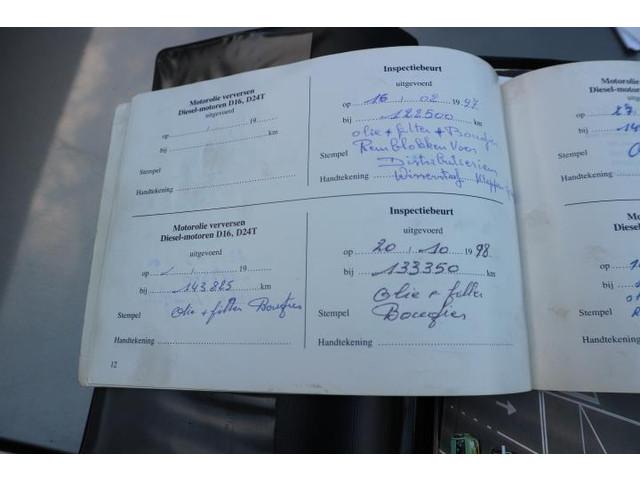 Motorolie verversen
Diesel-motoren D16, D24T
uitgevoerd
op / 19
bij km
Stempel
Handtekening
Inspectiebeurt
uitgevoerd
op 16 / 02 1997
bij 122500 km
olie + filter + Bougies
Remblokken Voor
Stempel Distributieriem
Handtekening Wisserstof
Motorolie verversen
Diesel-motoren D16, D24T
uitgevoerd
op / 19
bij 143825 km
Stempel Olie + filter Bougies
Handtekening
Inspectiebeurt
uitgevoerd
op 20 / 10 1998
bij 133350 km
Olie + filter
Stempel Bougies
Handtekening
12
Motorolie
Diesel-motoren
op 27
bij
Stempel
Handtekening
op
bij
Stempel
Handtekening